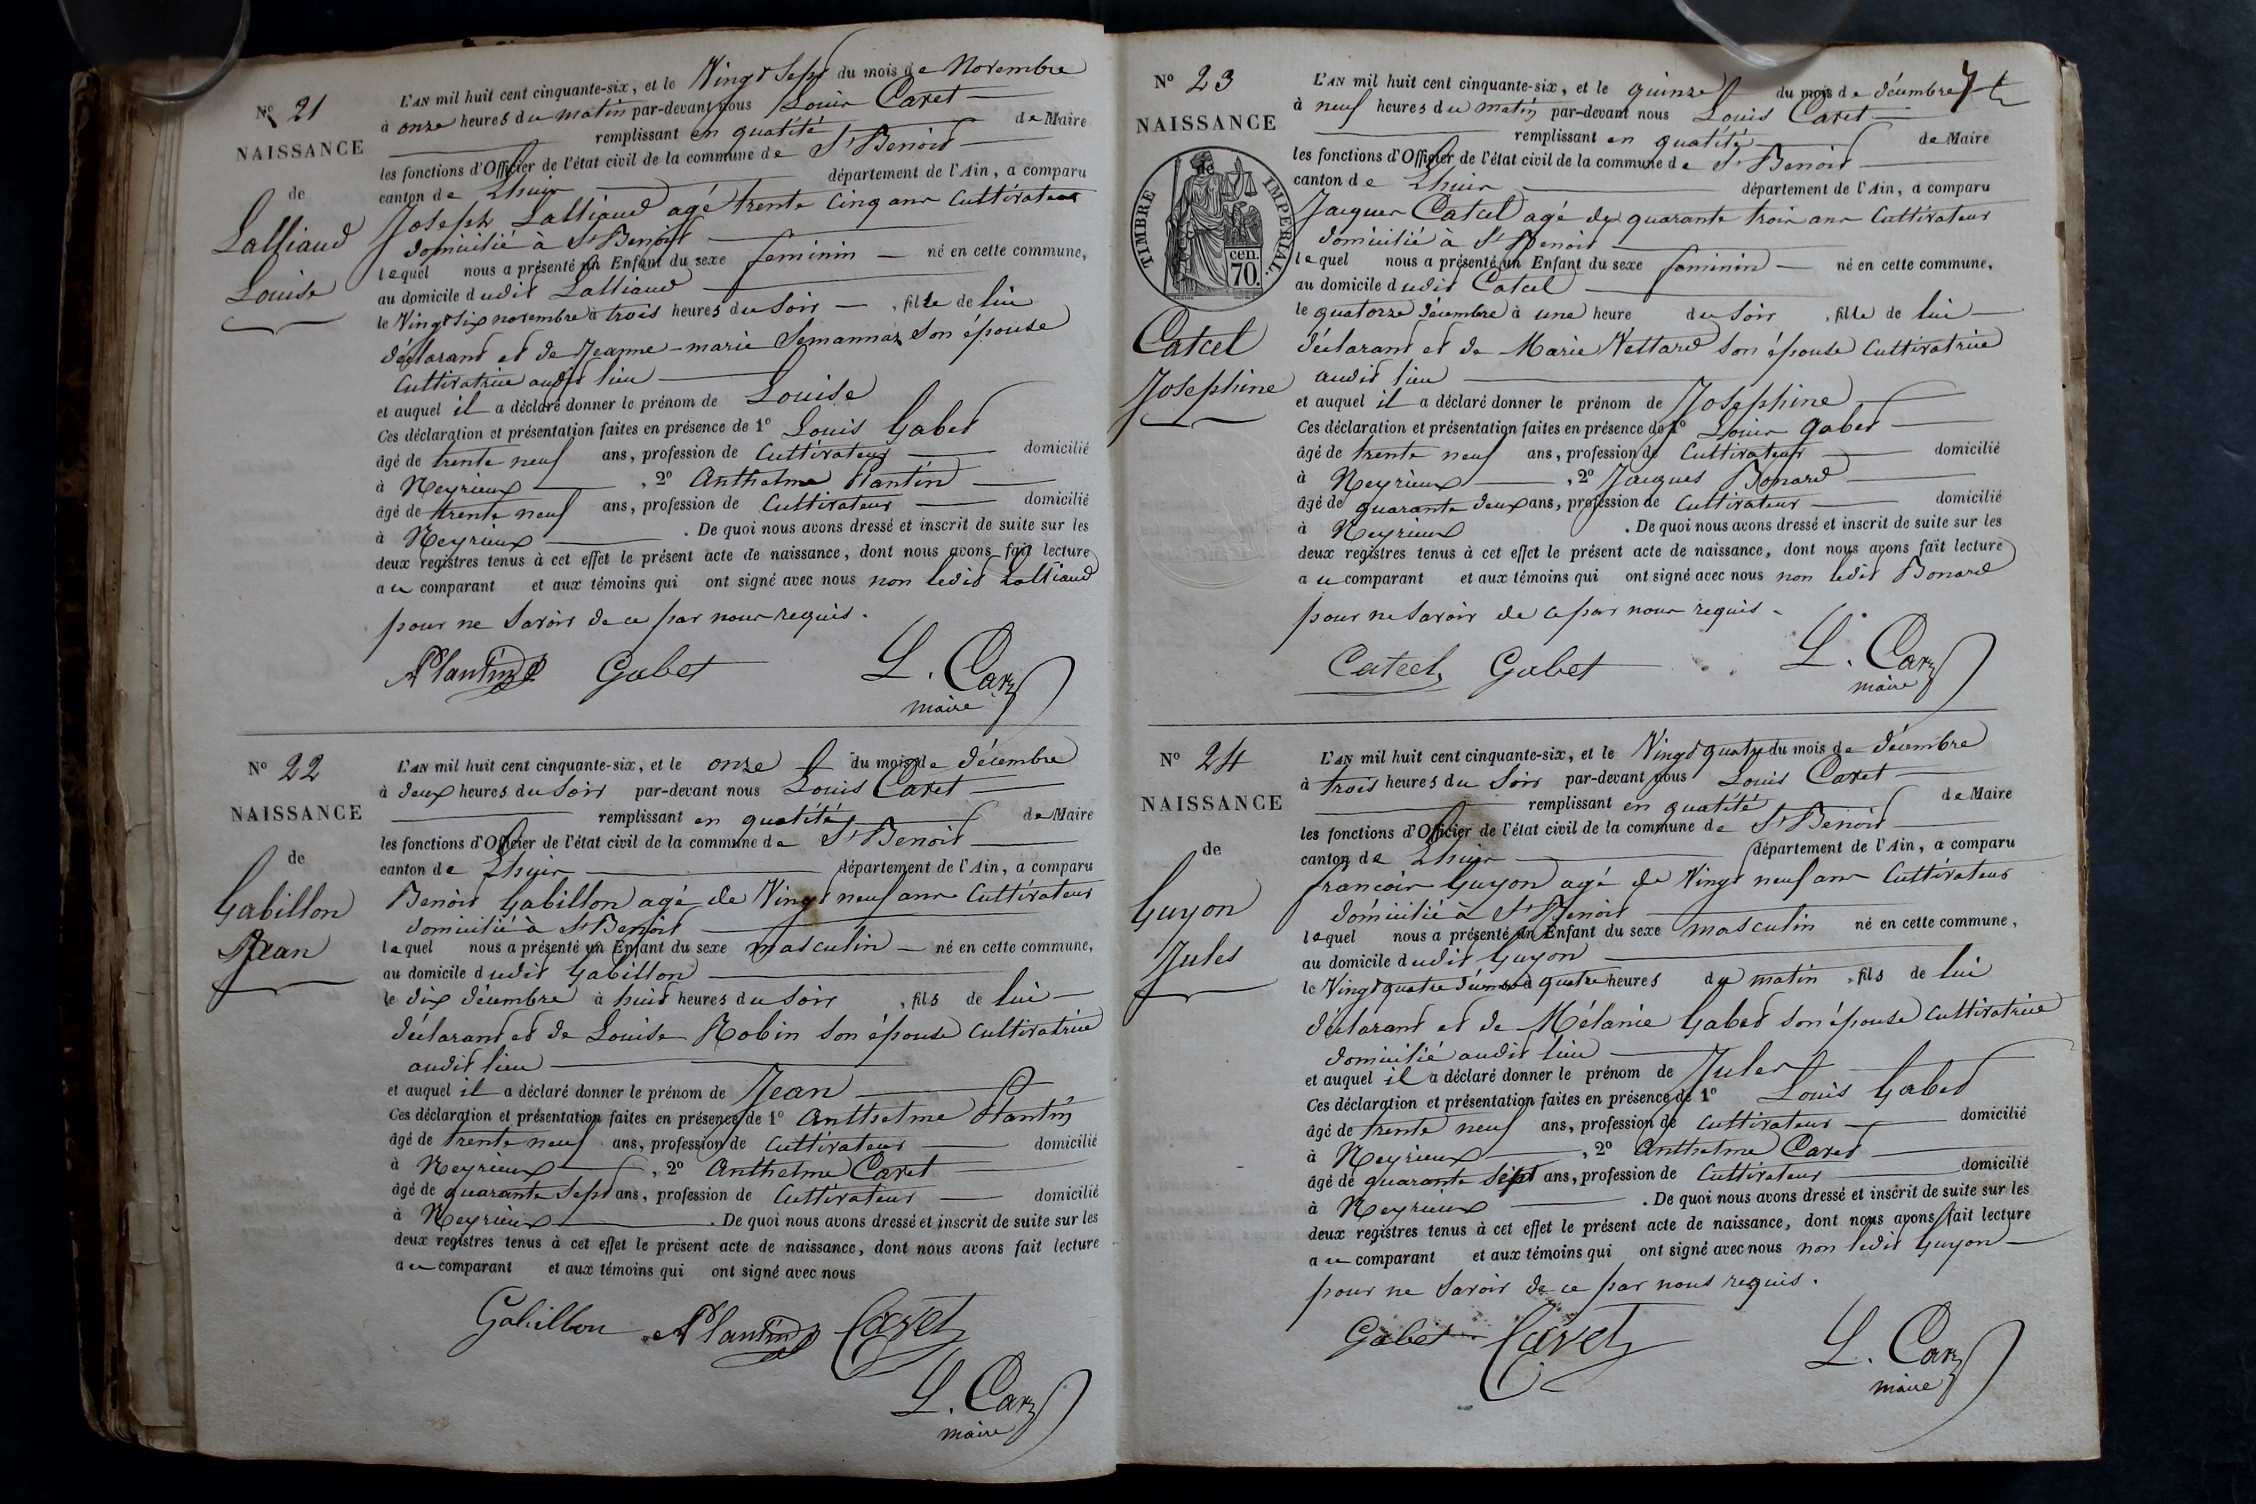 N° 21
NAISSANCE
de
Lalliaud
Louise
L'AN mil huit cent cinquante-six, et le Vingt Sept du mois de Novembre
à onze heures du matin par-devant nous Louis Caret
remplissant en qualité de Maire
les fonctions d'Officier de l'état civil de la commune de St Benoit
canton de Lhuis département de l'Ain, a comparu
Joseph Lalliaud agé trente cinq ans Cultivateur
domicilié à St Benoit
lequel nous a présenté un Enfant du sexe feminin né en cette commune,
au domicile dudit Lalliaud
le Vingt six novembre à trois heures du Soir, fille de lui
déclarant et de Jeanne-marie Semannaz Son épouse
Cultivatrice audit lieu
et auquel il a déclaré donner le prénom de Louise
Ces déclaration et présentation faites en présence de 1° Louis Gabet
âgé de trente neuf ans, profession de Cultivateur domicilié
à Neyrieux, 2° Anthelme Plantin
âgé de trente neuf ans, profession de Cultivateur domicilié
à Neyrieux. De quoi nous avons dressé et inscrit de suite sur les
deux registres tenus à cet effet le présent acte de naissance, dont nous avons fait lecture
au comparant et aux témoins qui ont signé avec nous non ledit Lalliaud
pour ne Savoir de ce par nous requis.
APlantin Gabet L. Caret
maire
N° 22
NAISSANCE
de
Gabillon
Jean
L'AN mil huit cent cinquante-six, et le onze du mois de décembre
à deux heures du Soir par-devant nous Louis Caret
remplissant en qualité de Maire
les fonctions d'Officier de l'état civil de la commune de St Benoit
canton de Lhuis département de l'Ain, a comparu
Benoit Gabillon agé de Vingt neuf ans Cultivateur
domicilié à St Benoit
lequel nous a présenté un Enfant du sexe masculin né en cette commune,
au domicile dudit Gabillon
le dix décembre à huit heures du Soir, fils de lui
déclarant et de Louise Robin Son épouse Cultivatrice
audit lieu
et auquel il a déclaré donner le prénom de Jean
Ces déclaration et présentation faites en présence de 1° Anthelme Plantin
âgé de trente neuf ans, profession de Cultivateur domicilié
à Neyrieux, 2° Anthelme Caret
âgé de quarante Sept ans, profession de Cultivateur domicilié
à Neyrieux. De quoi nous avons dressé et inscrit de suite sur les
deux registres tenus à cet effet le présent acte de naissance, dont nous avons fait lecture
au comparant et aux témoins qui ont signé avec nous
Gabillon APlantin Caret
L. Caret
maire
N° 23
NAISSANCE
TIMBRE IMPÉRIAL.
cen.
70.
Catcel
Josephine
L'AN mil huit cent cinquante-six, et le quinze du mois de décembre
à neuf heures du matin par-devant nous Louis Caret
remplissant en qualité de Maire
les fonctions d'Officier de l'état civil de la commune de St Benoit
canton de Lhuis département de l'Ain, a comparu
Jacques Catcel agé de quarante trois ans Cultivateur
domicilié à St Benoit
lequel nous a présenté un Enfant du sexe feminin né en cette commune,
au domicile dudit Catcel
le quatorze décembre à une heure du Soir, fille de lui
déclarant et de Marie Vettard son épouse Cultivatrice
audit lieu
et auquel il a déclaré donner le prénom de Josephine
Ces déclaration et présentation faites en présence de 1° Louis Gabet
âgé de trente neuf ans, profession de Cultivateur domicilié
à Neyrieux, 2° Jacques Bonard
âgé de quarante deux ans, profession de Cultivateur domicilié
à Neyrieux. De quoi nous avons dressé et inscrit de suite sur les
deux registres tenus à cet effet le présent acte de naissance, dont nous avons fait lecture
au comparant et aux témoins qui ont signé avec nous non ledit Bonard
pour ne Savoir de ce par nous requis.
Catcel Gabet L. Caret
maire
N° 24
NAISSANCE
de
Guyon
Jules
L'AN mil huit cent cinquante-six, et le Vingt quatre du mois de décembre
à trois heures du Soir par-devant nous Louis Caret
remplissant en qualité de Maire
les fonctions d'Officier de l'état civil de la commune de St Benoit
canton de Lhuis département de l'Ain, a comparu
francois Guyon agé de Vingt neuf ans Cultivateur
domicilié à St Benoit
lequel nous a présenté un Enfant du sexe masculin né en cette commune,
au domicile dudit Guyon
le Vingt quatre décembre à quatre heures du matin, fils de lui
déclarant et de Mélanie Gabet son épouse Cultivatrice
domicilié audit lieu
et auquel il a déclaré donner le prénom de Jules
Ces déclaration et présentation faites en présence de 1° Louis Gabet
âgé de trente neuf ans, profession de Cultivateur domicilié
à Neyrieux, 2° Anthelme Caret
âgé de quarante sept ans, profession de Cultivateur domicilié
à Neyrieux. De quoi nous avons dressé et inscrit de suite sur les
deux registres tenus à cet effet le présent acte de naissance, dont nous avons fait lecture
au comparant et aux témoins qui ont signé avec nous non ledit Guyon
pour ne Savoir de ce par nous requis.
Gabet Caret L. Caret
maire